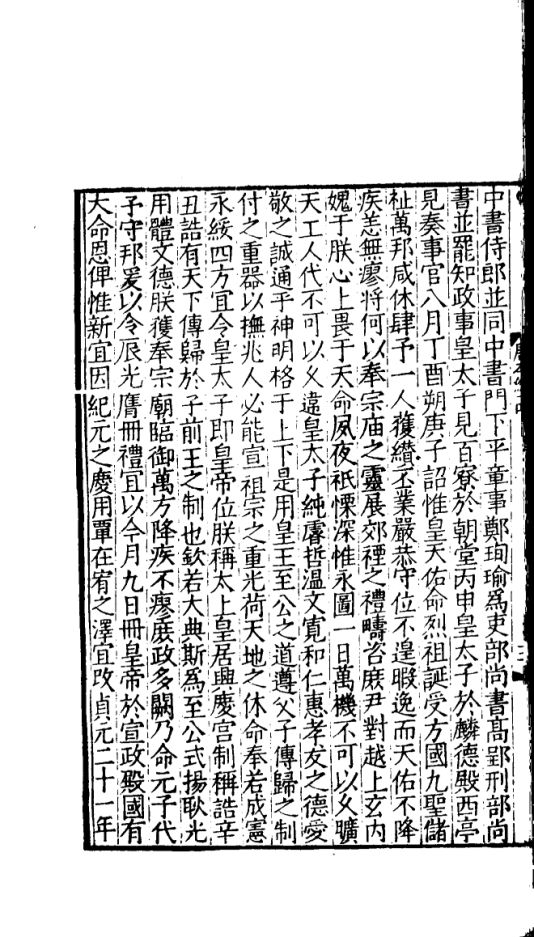 中書侍郎並同中書門下平章事鄭珣瑜為吏部尚書高郢刑部尚
書並罷知政事皇太子見百寮於朝堂丙申皇太子於麟德殿西亭
見奏事官八月丁酉朔庚子詔惟皇天佑命烈祖誕受方國九聖儲
祉萬邦咸休肆予一人獲纘丕業嚴恭守位不遑暇逸而天佑不降
疾恙無瘳將何以奉宗庙之靈展郊禋之禮疇咨庶尹對越上玄内
愧于朕心上畏于天命夙夜祇慄深惟永圖一日萬機不可以久曠
天工人代不可以久違皇太子純睿哲溫文寬和仁惠孝友之德愛
敬之誠通乎神明格于上下是用皇王至公之道遵父子傳歸之制
付之重器以撫兆人必能宣祖宗之重光荷天地之休命奉若成憲
永綏四方宜令皇太子即皇帝位朕稱太上皇居興慶宫制稱誥辛
丑誥有天下傳歸於子前王之制也欽若大典斯為至公式揚耿光
用體文德朕獲奉宗廟臨御萬方降疾不瘳庶政多闕乃命元子代
子守邦爰以令辰光膺冊禮宜以今月九日冊皇帝於宣政殿國有
大命恩俾惟新宜因紀元之慶用覃在宥之澤宜改貞元二十一年